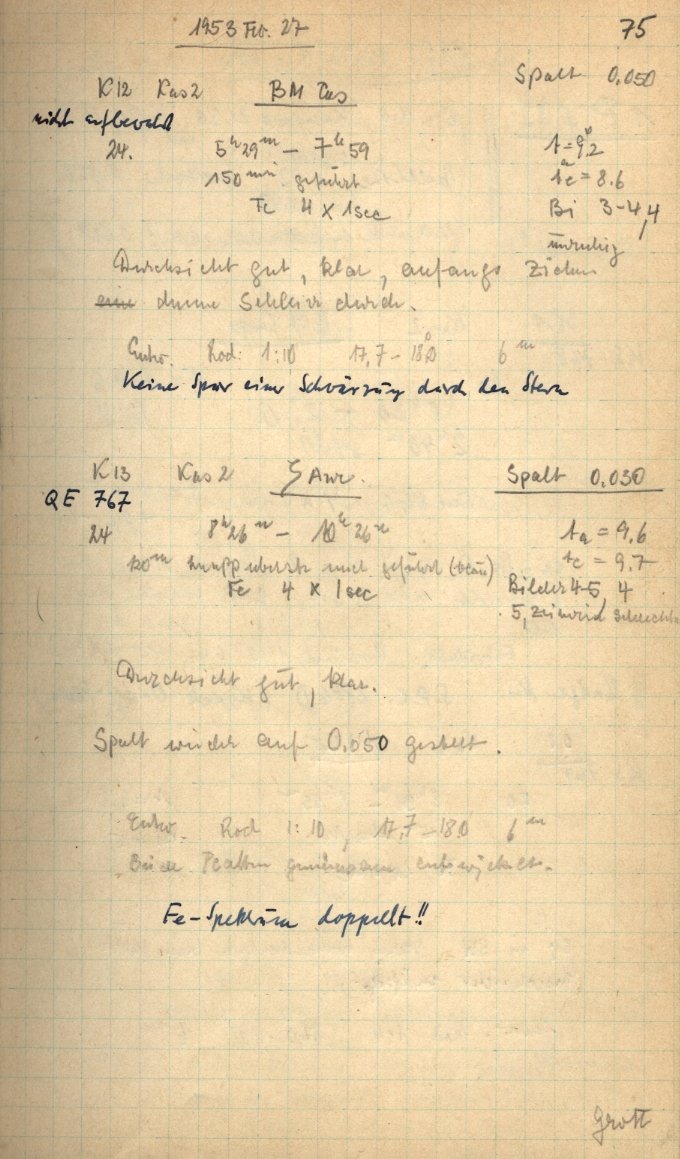 1953 Feb. 27
75
Spalt 0.050
K12 Kas2 BM Cas
nicht aufbewahrt
24. 5ʰ29ᵐ – 7ʰ59
t = 9.2
150 min geführt
te = 8.6
Fe 4 × 1sec
Bi 3-4, 4
unruhig
Durchsicht gut, klar, anfangs ziehen
dünne Schleier durch.
Entw. Rod: 1:10 17,7 – 18.0 6ᵐ
Keine Spur einer Schwärzung durch den Stern
K13 Kas2 ζ Aur.
Spalt 0.030
QE 767
24 8ʰ26ᵐ – 10ʰ26ᵐ
ta = 9.6
te = 9.7
120ᵐ geführt (blau)
Fe 4 × 1sec
Bilder 4-5, 4
5, zeitweise schlechter
Durchsicht gut, klar.
Spalt wieder auf 0.050 gestellt.
Entw. Rod 1:10, 17,7 – 18.0 6ᵐ
Beide Platten gemeinsam entwickelt.
Fe-Spektrum doppelt!!